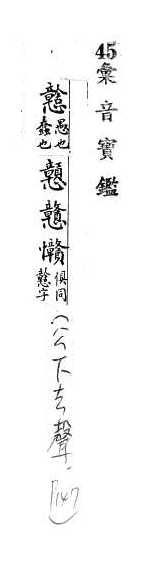 45彙音寶鑑
戇 愚也 蠢也 戅 戇 㦫 俱同 戇字 (公下去聲) 147